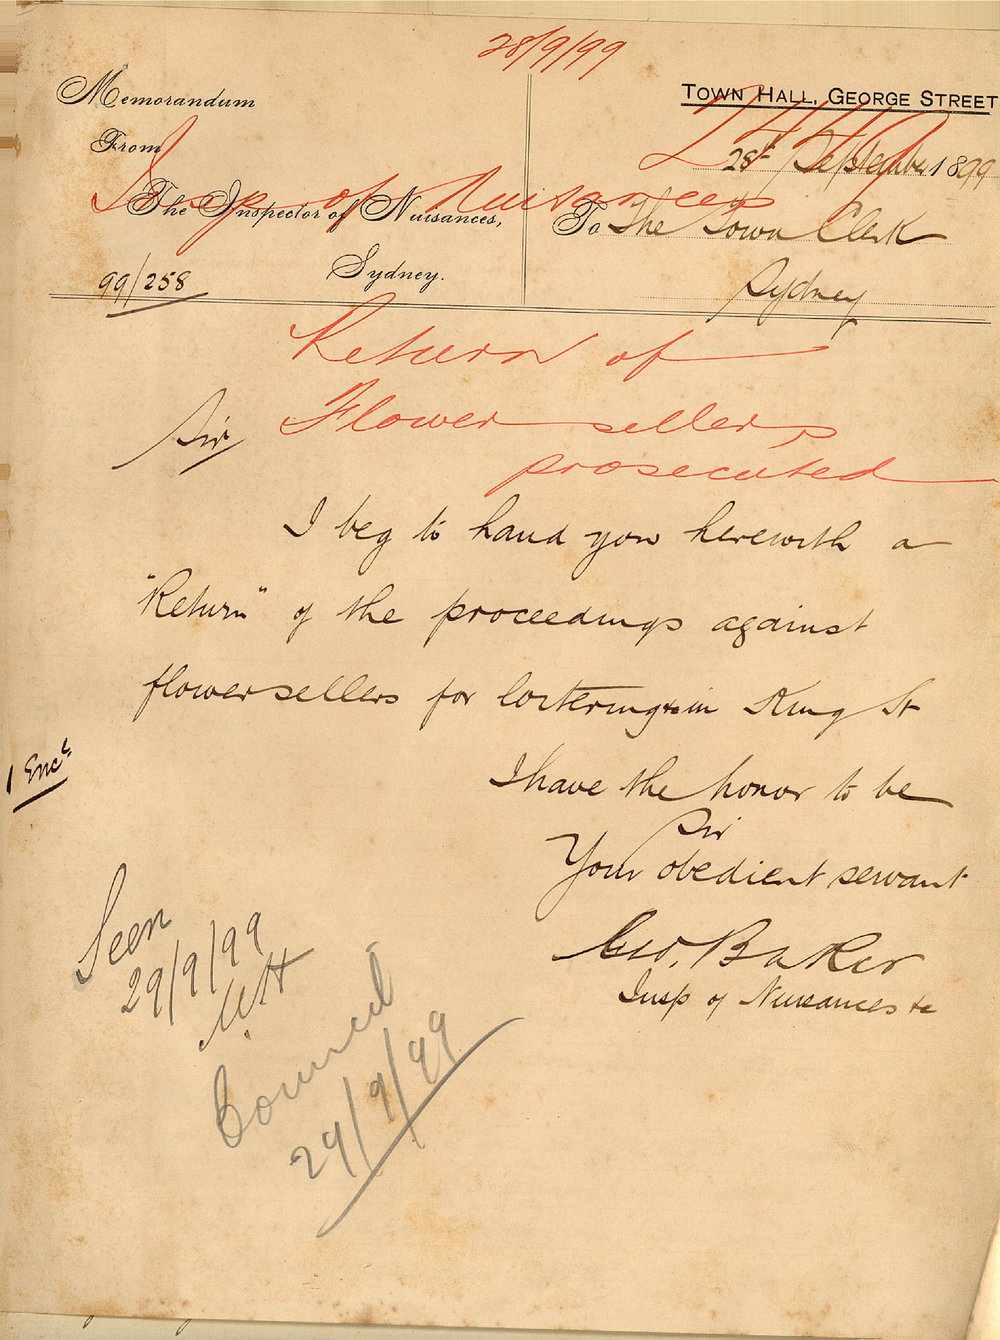 28/9/99
Memorandum
From
The Inspector of Nuisances,
Sydney.
99/258
Insp of Nuisances
TOWN HALL, GEORGE STREET
28th September 1899
To The Town Clerk
Sydney
Return of
Flower sellers
prosecuted
Sir
I beg to hand you herewith a
"Return" of the proceedings against
flowersellers for loitering &c in King St
1 Encl
I have the honor to be
Sir
Your obedient servant
Geo. Baker
Insp of Nuisances &c
Seen
29/9/99
Council
29/9/99